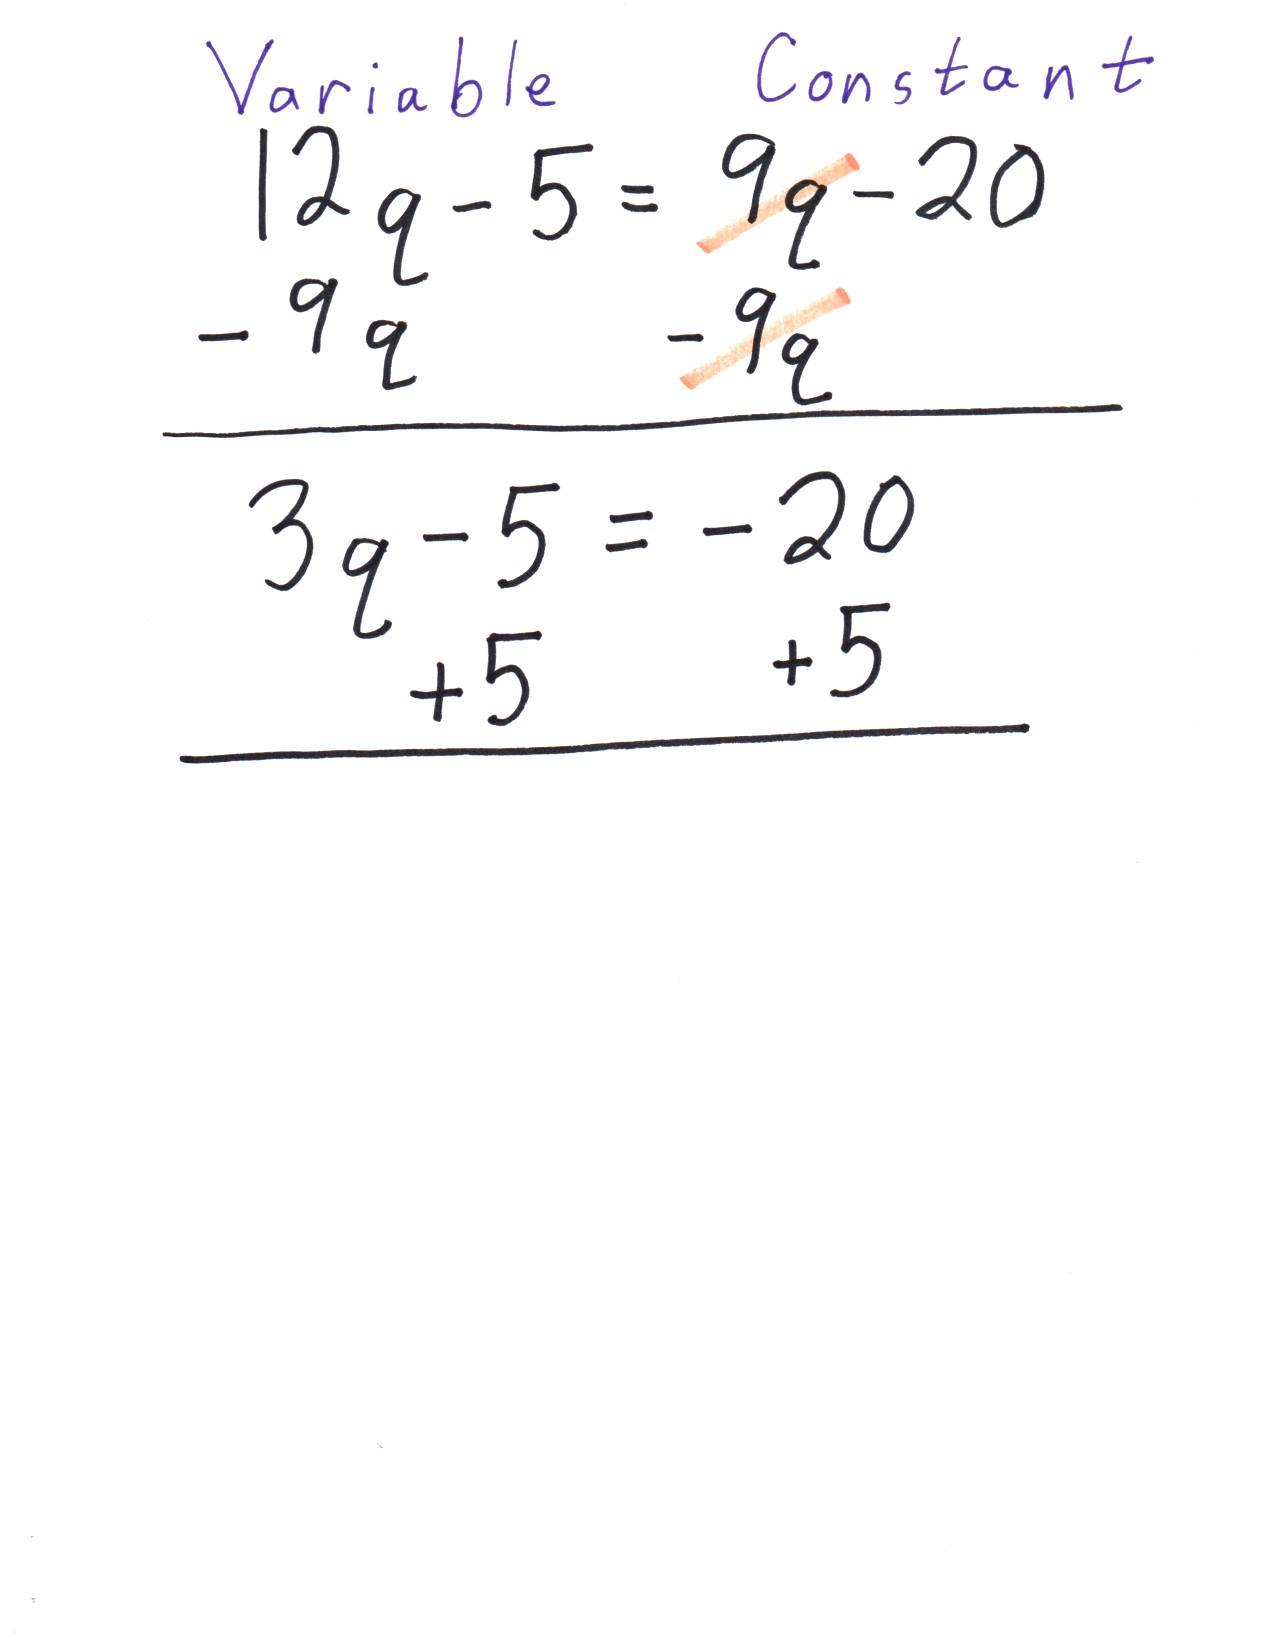 Variable Constant
12q - 5 = 9q - 20
- 9q - 9q
3q - 5 = - 20
+5 +5